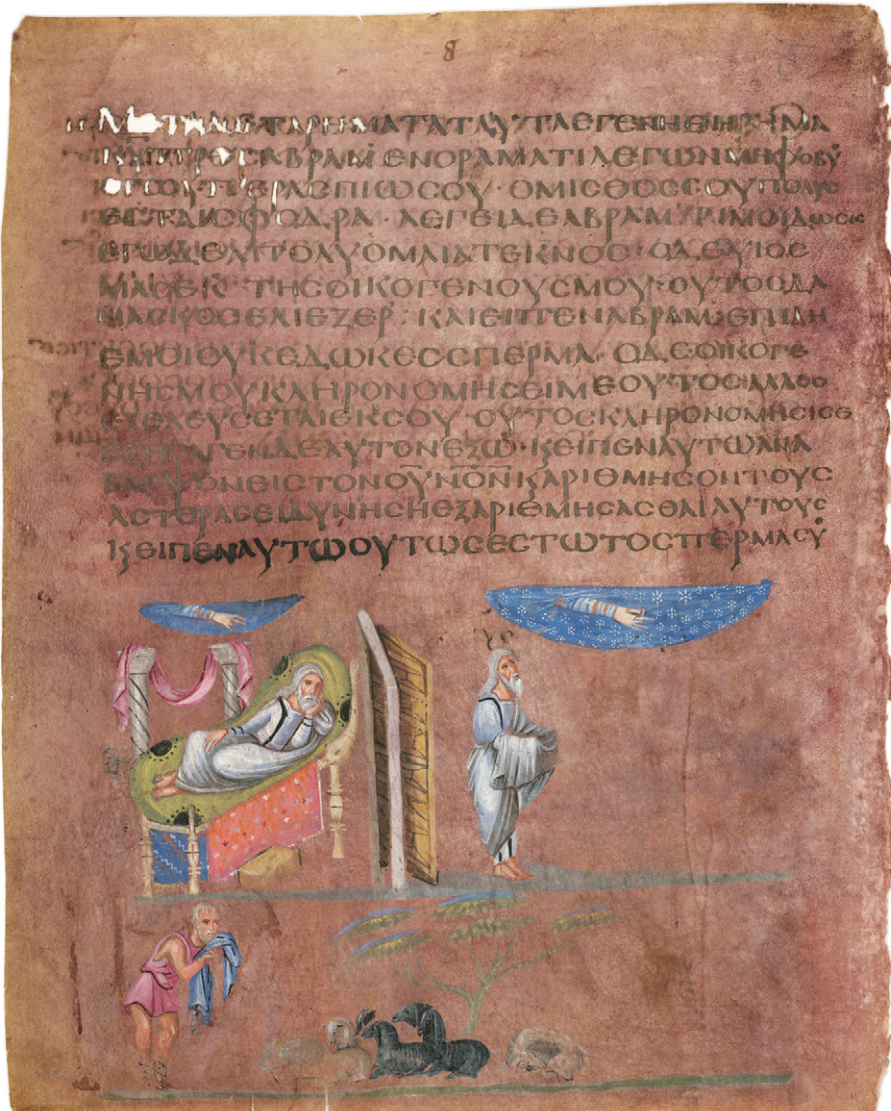 8
ΤΑΡΗΜΑΤΑΤΑΥΤΑ ΡΗΜΑ
ΑΒΡΑΜ ΕΝΟΡΑΜΑΤΙΛΕΓΩΝΜΗΦΟΒΟΥ
ΥΠΕΡΑϹΠΙΩϹΟΥ· ΟΜΙϹΘΟϹϹΟΥΠΟΛΥϹ
ΕϹΤΑΙϹΦΟΔΡΑ· ΛΕΓΕΙΔΕΑΒΡΑΜ ΜΟΙΔΩϹΕΙϹ
ΕΓΩΔΕΑΠΟΛΥΟΜΑΙΑΤΕΚΝΟϹ· ΟΔΕΥΙΟϹ
ΜΑϹΕΚ· ΤΗϹΟΙΚΟΓΕΝΟΥϹΜΟΥ· ΟΥΤΟϹΔΑ
ΜΑϹΚΟϹΕΛΙΕΖΕΡ: ΚΑΙΕΙΠΕΝΑΒΡΑΜ· ΕΠΙΔΗ
ΕΜΟΙΟΥΚΕΔΩΚΕϹϹΠΕΡΜΑ· ΟΔΕΟΙΚΟΓΕ
ΝΗϹΜΟΥΚΛΗΡΟΝΟΜΗϹΕΙΜΕΟΥΤΟϹΑΛΛΟϹ
ΕΞΕΛΕΥϹΕΤΑΙΕΚϹΟΥ· ΟΥΤΟϹΚΛΗΡΟΝΟΜΗϹΙϹΕ
ΕΞΗΓΑΓΕΝΔΕΑΥΤΟΝΕΞΩ· ΚΕΙΠΕΝΑΥΤΩΑΝΑ
ΒΛΕΨΟΝΕΙϹΤΟΝΟΥΝΟΝϏΑΡΙΘΜΗϹΟΝΤΟΥϹ
ΑϹΤΕΡΑϹΕΙΔΥΝΗϹΗΕΞΑΡΙΘΜΗϹΑϹΘΑΙΑΥΤΟΥϹ
ϏΕΙΠΕΝΑΥΤΩΟΥΤΩϹΕϹΤΩΤΟϹΠΕΡΜΑϹΟΥ